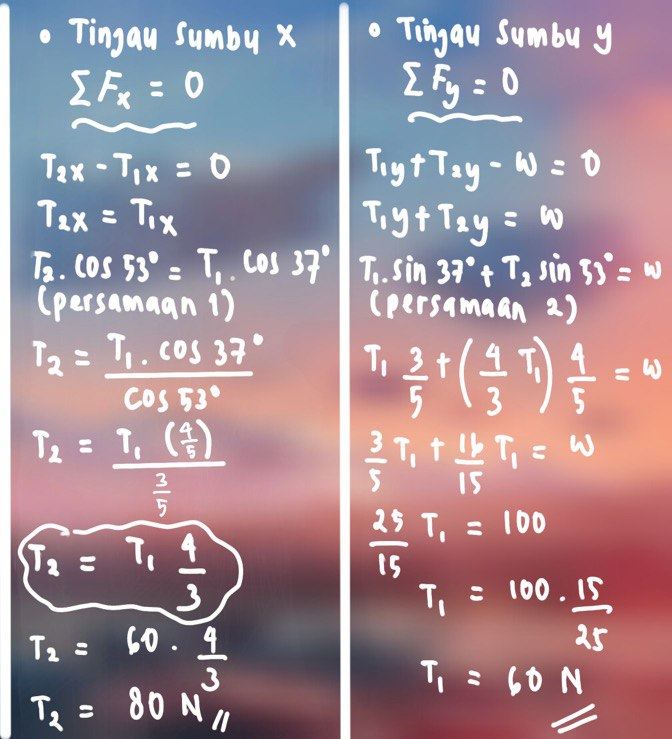 • Tinjau Sumbu x
ΣFx = 0
T₂x - T₁x = 0
T₂x = T₁x
T₂. cos 53° = T₁. cos 37°
(persamaan 1)
T₂ = T₁. cos 37° / cos 53°
T₂ = T₁ (4/5) / 3/5
T₂ = T₁ 4/3
T₂ = 60 . 4/3
T₂ = 80 N //
• Tinjau Sumbu y
ΣFy = 0
T₁y + T₂y - w = 0
T₁y + T₂y = w
T₁. sin 37° + T₂ sin 53° = w
(persamaan 2)
T₁ 3/5 + (4/3 T₁) 4/5 = w
3/5 T₁ + 16/15 T₁ = w
25/15 T₁ = 100
T₁ = 100 . 15/25
T₁ = 60 N